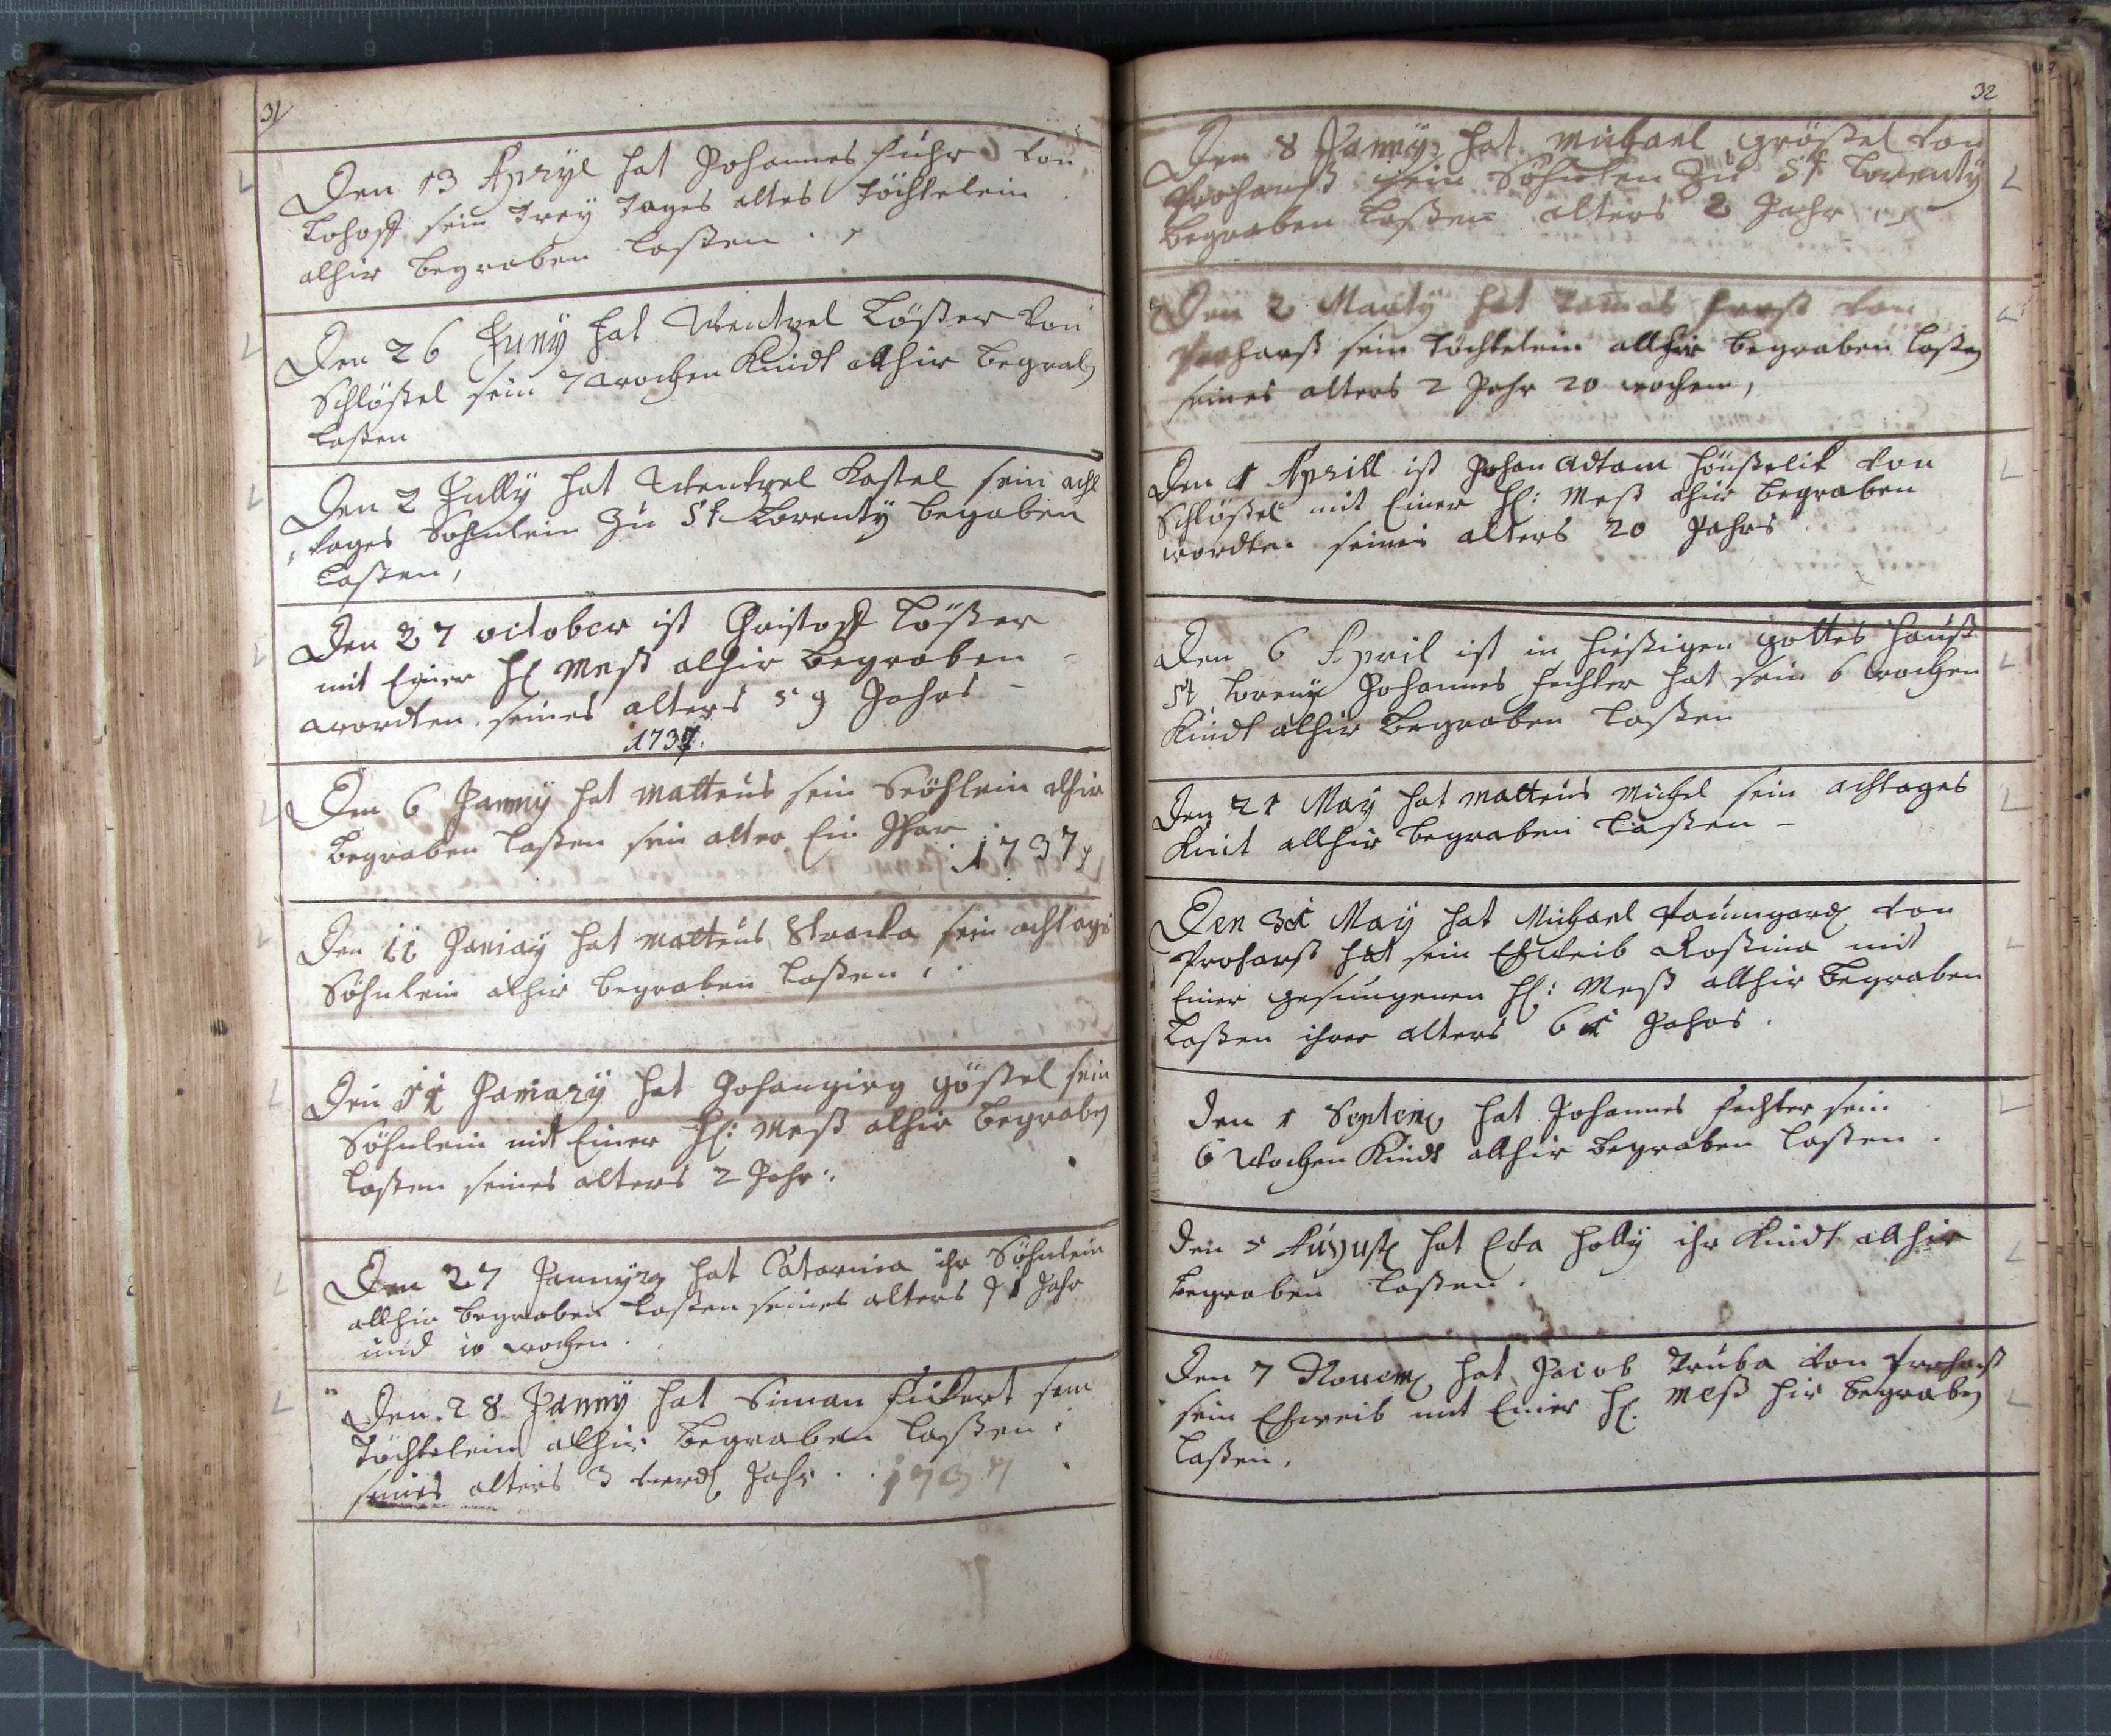 31
Den 13 Apryl hat Johannes fuhr von
Lohoff sein Trey Tages altes Töchtelein
alhir begraben laßen.
Den 26 Juny hat Wentzel Lößer von
Schlößel sein 7 wochen Kindt alhir begrab
laßen
Den 2 Jully hat Wentzel Kastel sein acht
tages Söhnlein zu St Lorenty begaben
laßen,
Den 27 october ist Christoff Lößer
mit Einer Hl Meß alhir begraben
wordten. seines alters 59 Jahrs
1737.
Den 6 Janny hat Matteus sein Söhlein alhir
begraben laßen sein alter Ein Jhar
1737
Den 11 Januay hat Matteus Straka sein achtags
Söhnlein alhir begraben laßen,
Den 11 Januarÿ hat Johangirg gößel sein
Söhnlein mit Einer Hl: Meß alhir begrab
laßen seines alters 2 Jahr:
Den 27 hat Catarina ihr Söhnlein
allhir begraben laßen seines alters 1 Jahr
und 10 wochen.
Den 28 Janny hat Siman fickert sein
Töchtelein alhir begraben laßen
seines alters 3 Jahr. 1737
32
Den 8 Janny hat Michael größel von
Proharß sein Söhnlen Zu St Lorenty
begraben laßen alters 2 Jahr
Den 2 Marty hat Tamas von
Proharß sein Töchtelein allhir begraben laßen
seines alters 2 Jahr 20 wochen,
Den 1 Aprill ist Johan Adtam von
Schlößel mit Einer Hl: Meß alhir begraben
wordten seines alters 20 Jahrs
Den 6 April ist in hießigen gottes hauß
St Loreny Johannes fechter hat sein 6 wochen
Kindt alhir begraben laßen
Den 21 May hat Matteus Michel sein achtages
Kint allhir begraben laßen
Den 31 May hat Michael Paumgard von
Proharß hat sein Ehweib Roßina mit
Einer gesungenen Hl: Meß allhir begraben
laßen ihres alters 61 Jahrs.
Den 1 Septem hat Johannes fechter sein
6 Wochen Kindt allhir begraben laßen.
Den 5 August hat Eva holly ihr Kindt allhir
begraben laßen.
Den 7 Novem hat Jacob Truba von Proharß
sein Ehweib mit Einer Hl. Meß hir begrab
laßen.